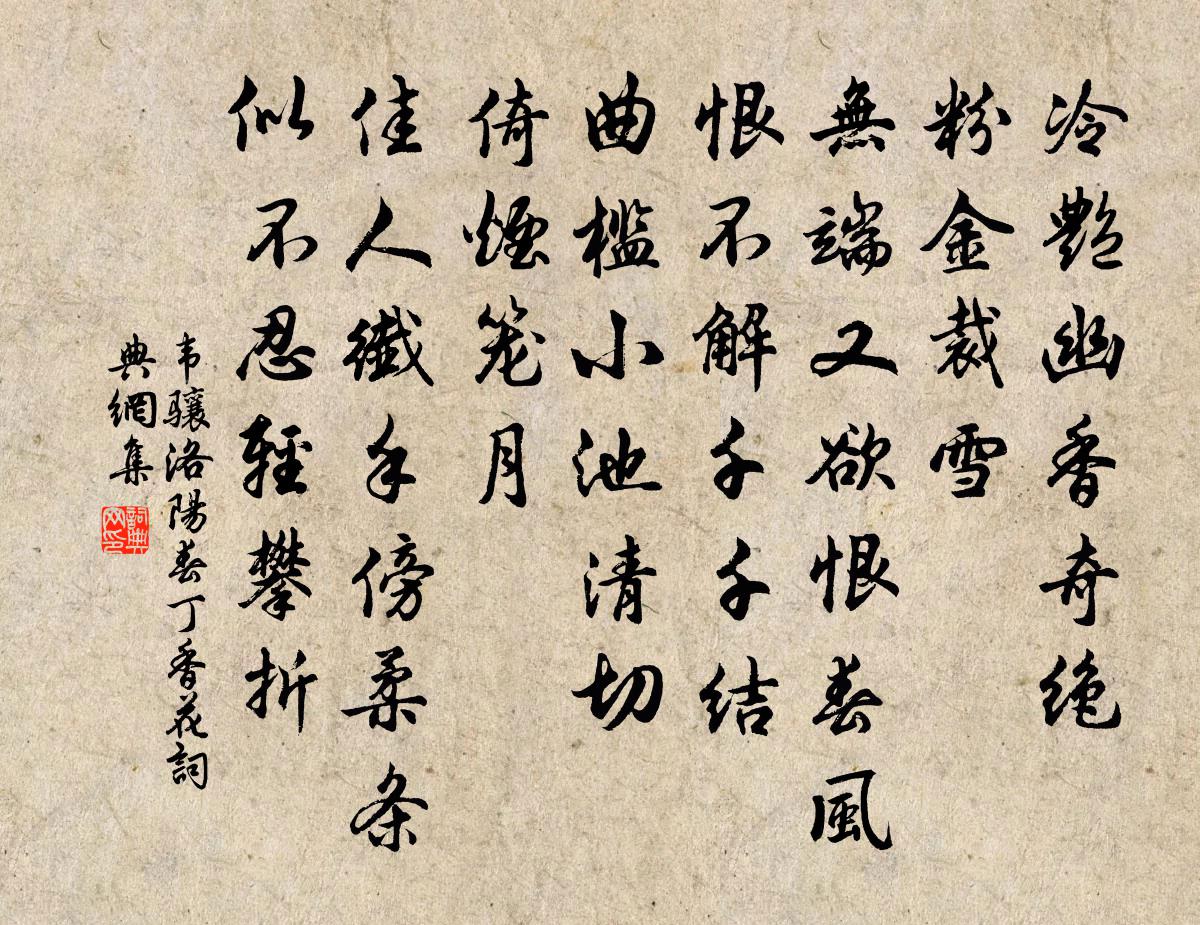 冷艷幽香奇绝
粉金裁雪
無端又欲恨春風
恨不解千千结
曲槛小池清切
倚煙笼月
佳人纖手傍柔条
似不忍輕攀折
韦骧洛陽春丁香花詞
典網集
詞典网印